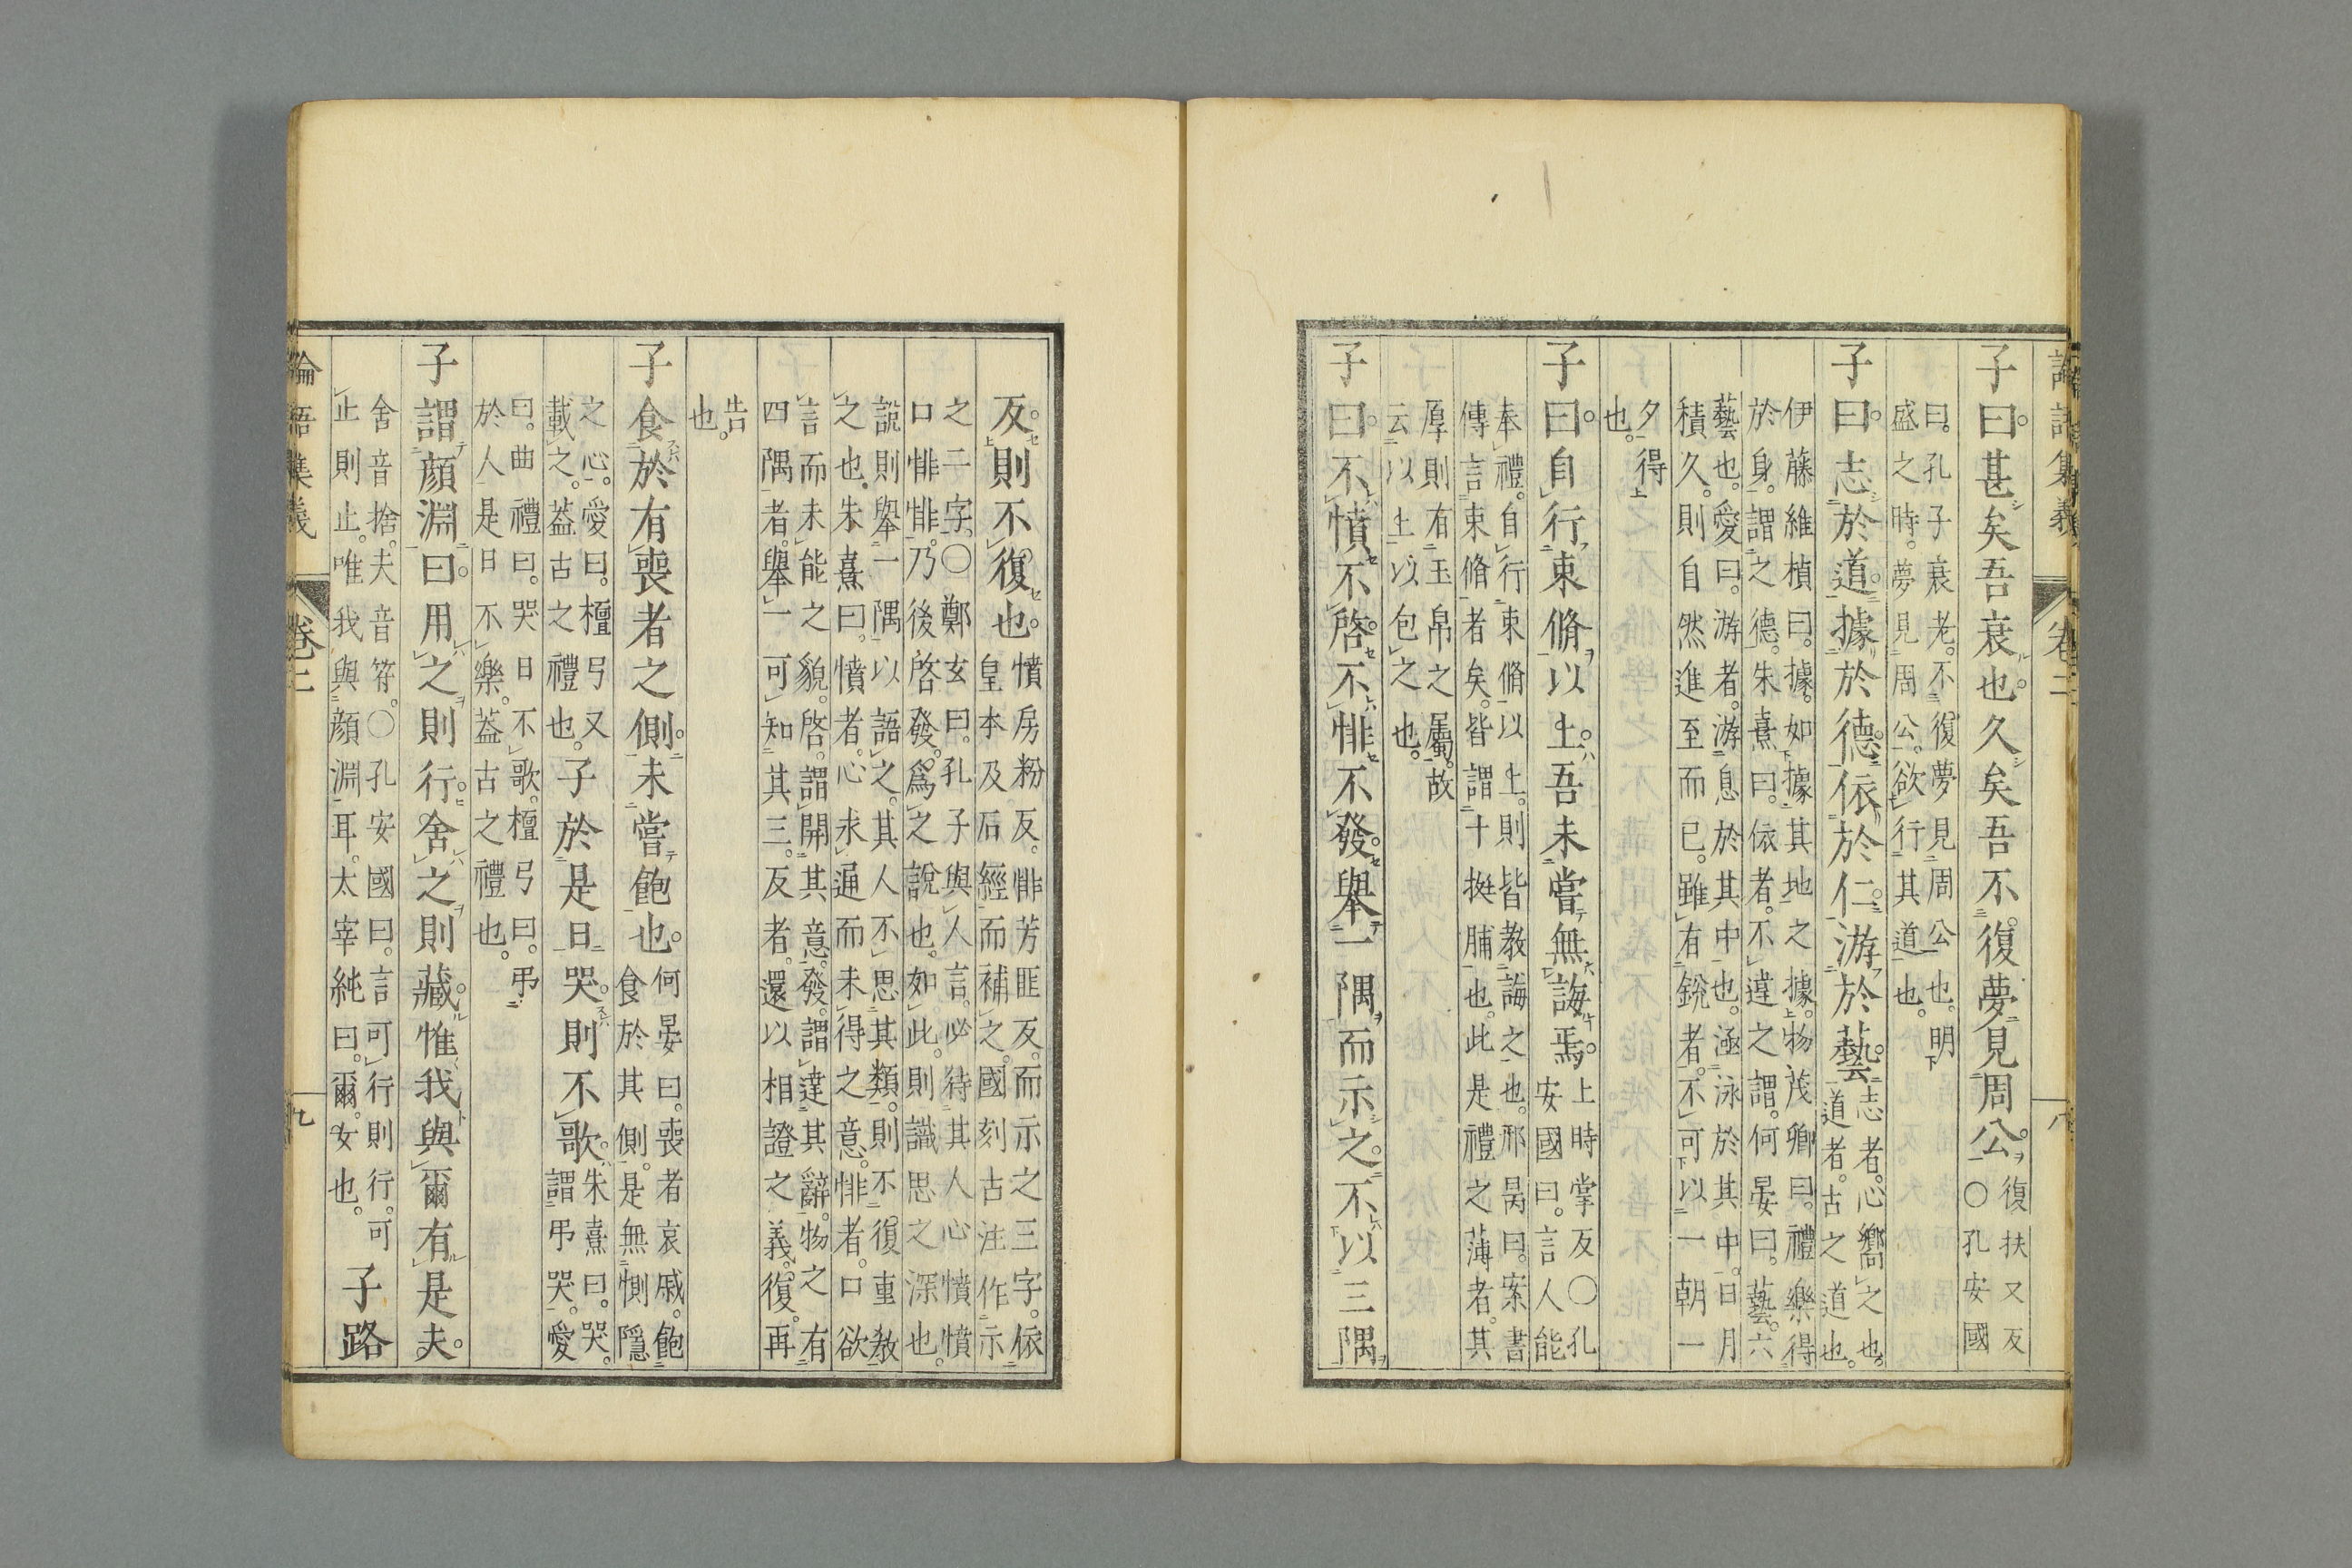 論語集義 卷二 八
子曰。甚矣吾衰也。久矣吾不復夢見周公。復扶又反
○孔安國
曰。孔子衰老。不復夢見周公也。明
盛之時。夢見周公。欲行其道也。
子曰。志於道。據於德。依於仁。游於藝。志者。心嚮之也。
道者。古之道也。
伊藤維楨曰。據。如據其地之據。物茂卿曰。禮樂得
於身。謂之德。朱熹曰。依者。不違之謂。何晏曰。藝。六
藝也。愛曰。游者。游息於其中也。涵泳於其中。日月
積久。則自然進至而已。雖有銳者。不可以一朝一
夕得
也。
子曰。自行束脩以上。吾未嘗無誨焉。上時掌反○孔
安國曰。言人能
奉禮。自行束脩以上。則皆教誨之也。邢昺曰。案書
傳言束脩者矣。皆謂十挺脯也。此是禮之薄者。其
厚則有玉帛之屬。故
云以上以包之也。
子曰。不憤不啓。不悱不發。舉一隅而示之。不以三隅
反。則不復也。憤房粉反。悱芳匪反。而示之三字。依
皇本及石經而補之。國刻古注作示
之二字。○鄭玄曰。孔子與人言。必待其人心憤憤
口悱悱。乃後啓發。爲之說也。如此。則識思之深也。
說則舉一隅以語之。其人不思其類。則不復重教
之也。朱熹曰。憤者。心求通而未得之意。悱者。口欲
言而未能之貌。啓。謂開其意。發。謂達其辭。物之有
四隅者。舉一可知其三。反者。還以相證之義。復。再
告
也。
子食於有喪者之側。未嘗飽也。何晏曰。喪者哀戚。飽
食於其側。是無惻隱
之心。愛曰。檀弓又
載之。葢古之禮也。子於是日哭。則不歌。朱熹曰。哭。
謂弔哭。愛
曰。曲禮曰。哭日不歌。檀弓曰。弔
於人。是日不樂。葢古之禮也。
子謂顔淵曰。用之則行。舍之則藏。惟我與爾有是夫。
舍音捨。夫音符。○孔安國曰。言可行則行。可
止則止。唯我與顔淵耳。太宰純曰。爾。女也。子路
論語集義 卷二 九